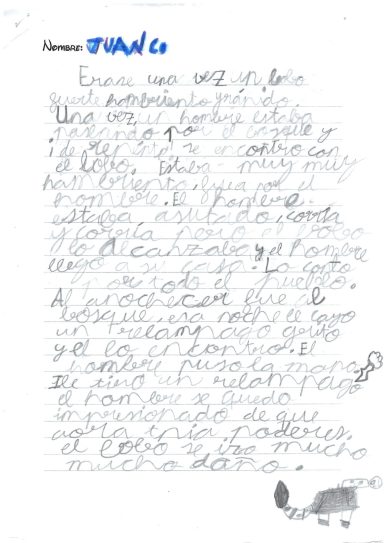 NOMBRE: JUANCO
Erase una vez un lobo
fuerte hambriento y grande.
Una vez, un hombre estaba
paseando por el bosque y
¡de repente! se encontro con
el lobo. Estaba muy muy
hambriento, fue a por el
hombre. El hombre
estaba asutado, corria
y corria pero el lobo
lo alcanzaba y el hombre
llego a su casa. Lo conto
por todo el pueblo.
Al anochecer fue al
bosque, era noche le cayo
un relampago grito
y el lo encontro. El
hombre puso la mano
le tiro un relampago
el hombre se quedo
impresionado de que
aora tnia poderes.
el lobo se izo mucho
mucho daño.